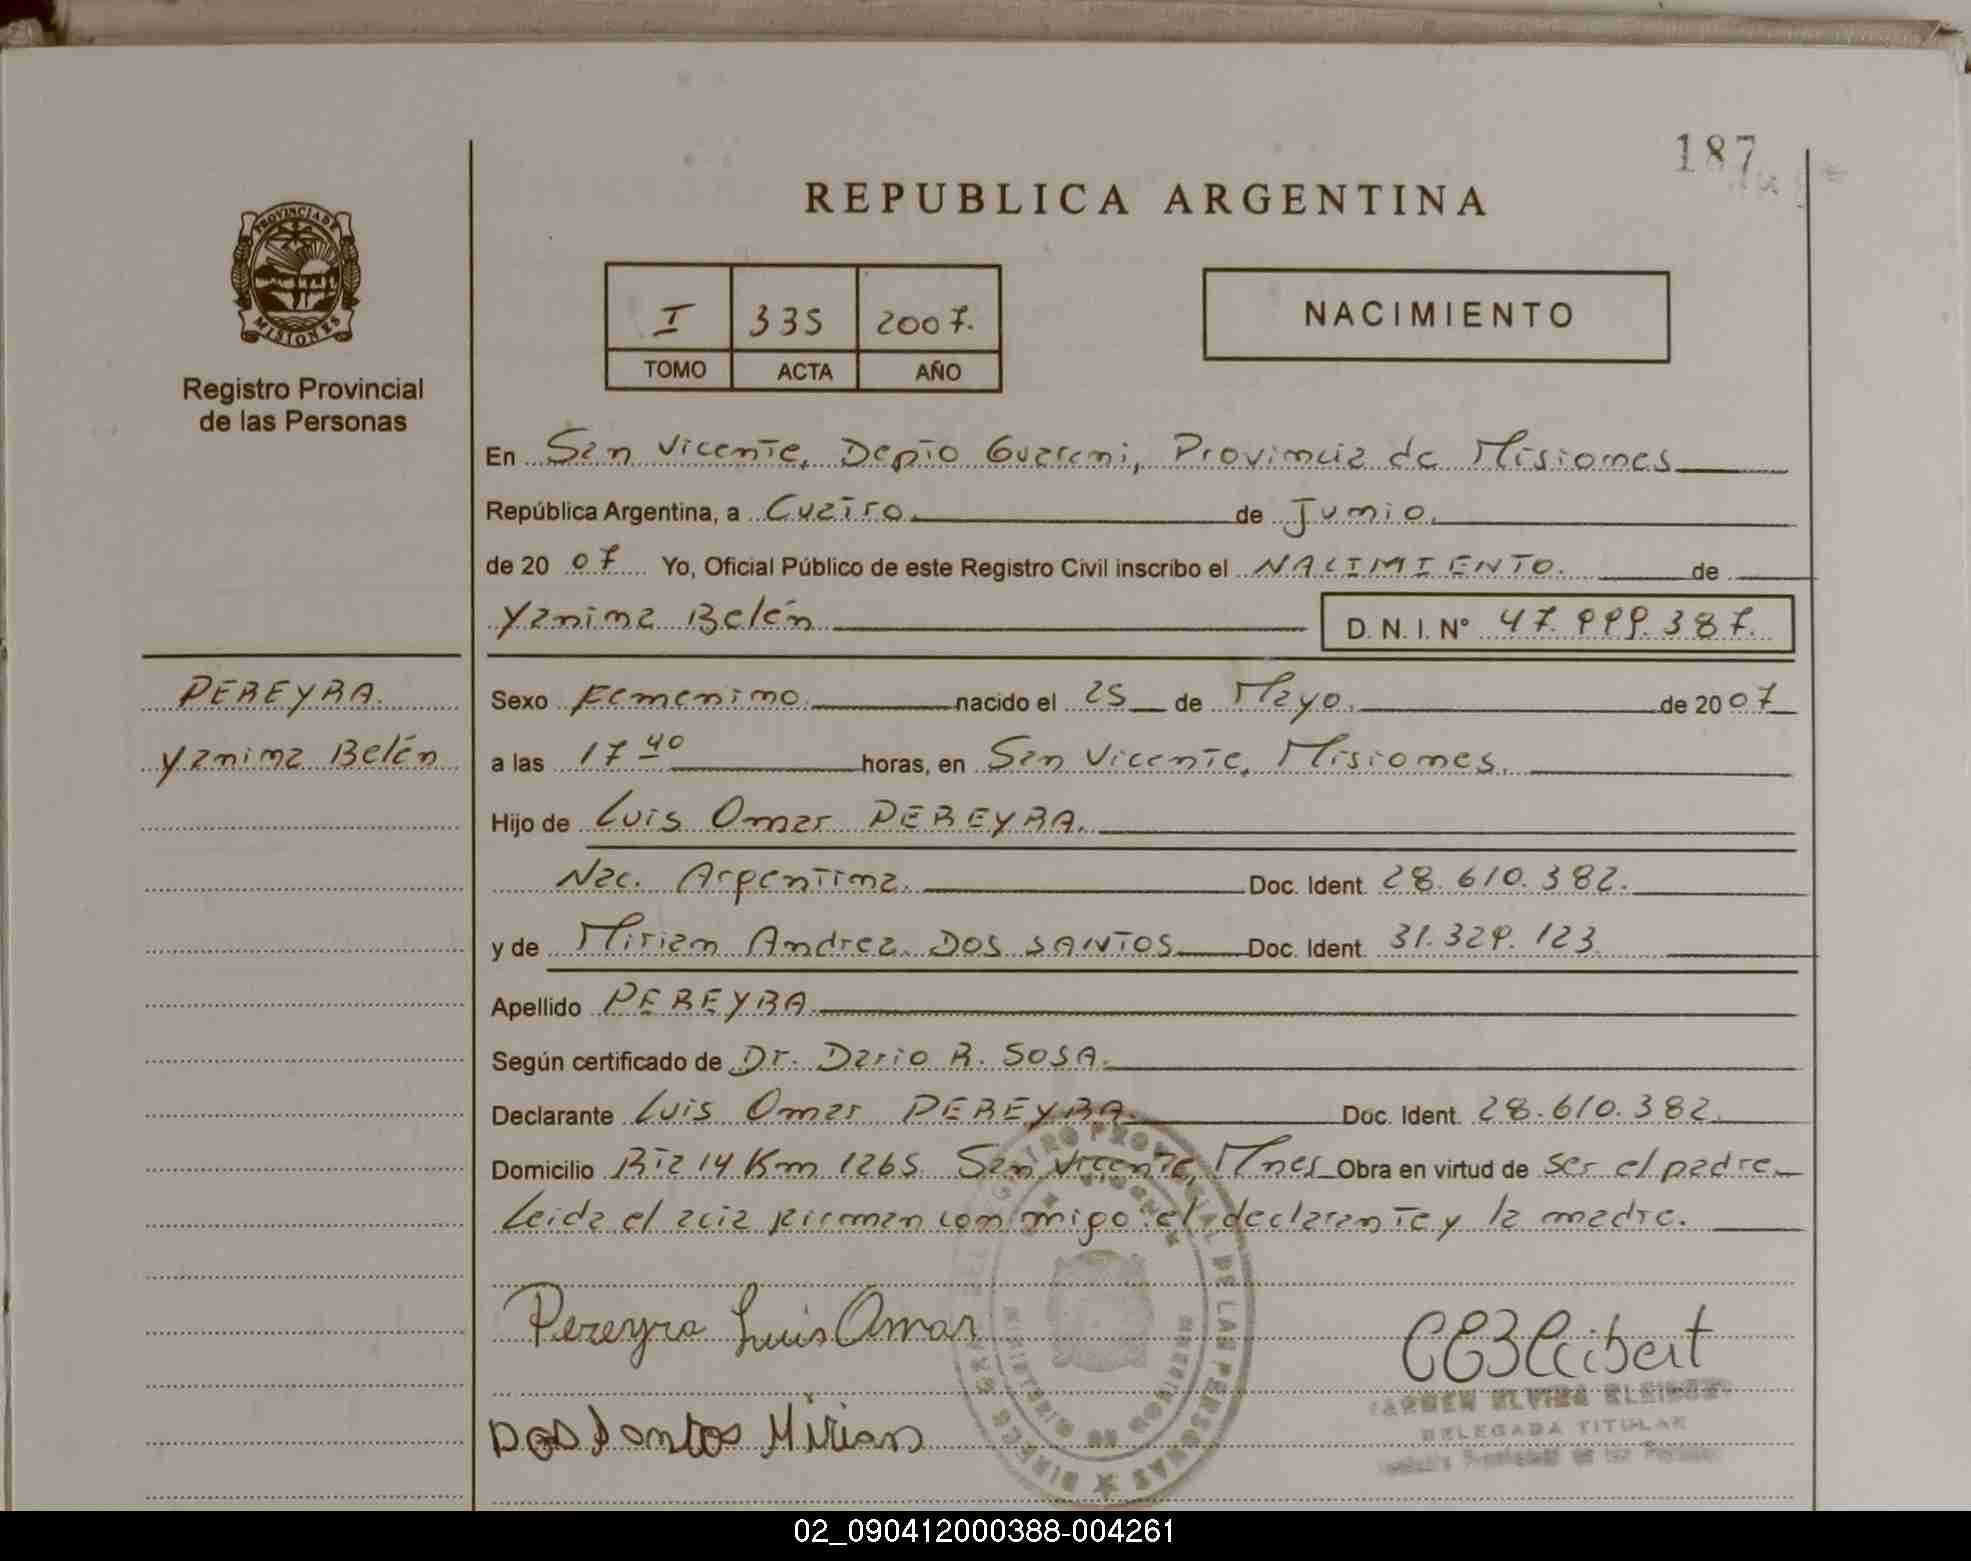 187
REPUBLICA ARGENTINA
PROVINCIA DE
MISIONES
Registro Provincial
de las Personas
I 335 2007.
TOMO ACTA AÑO
NACIMIENTO
En San Vicente, Depto Guarani, Provincia de Misiones
República Argentina, a Cuatro de Junio.
de 20 07 Yo, Oficial Público de este Registro Civil inscribo el NACIMIENTO. de
Yanina Belén D. N. I. N° 47.999.387.
PEREYRA.
Yanina Belén
Sexo Femenino. nacido el 25 de Mayo. de 20 07
a las 17 40 horas, en San Vicente, Misiones.
Hijo de Luis Omar PEREYRA.
Nac. Argentina. Doc. Ident. 28.610.382.
y de Miriam Andrea DOS SANTOS Doc. Ident. 31.329.123
Apellido PEREYRA
Según certificado de Dr. Dario R. SOSA.
Declarante Luis Omar PEREYRA. Doc. Ident. 28.610.382.
Domicilio Rta 14 Km 1265. San Vicente, Mnes Obra en virtud de ser el padre
Leida el acta firman conmigo el declarante y la madre.
Pereyra Luis Omar
Dos Santos Mirian
DELEGADA TITULAR
REGISTRO PROVINCIAL DE LAS PERSONAS
02_090412000388-004261